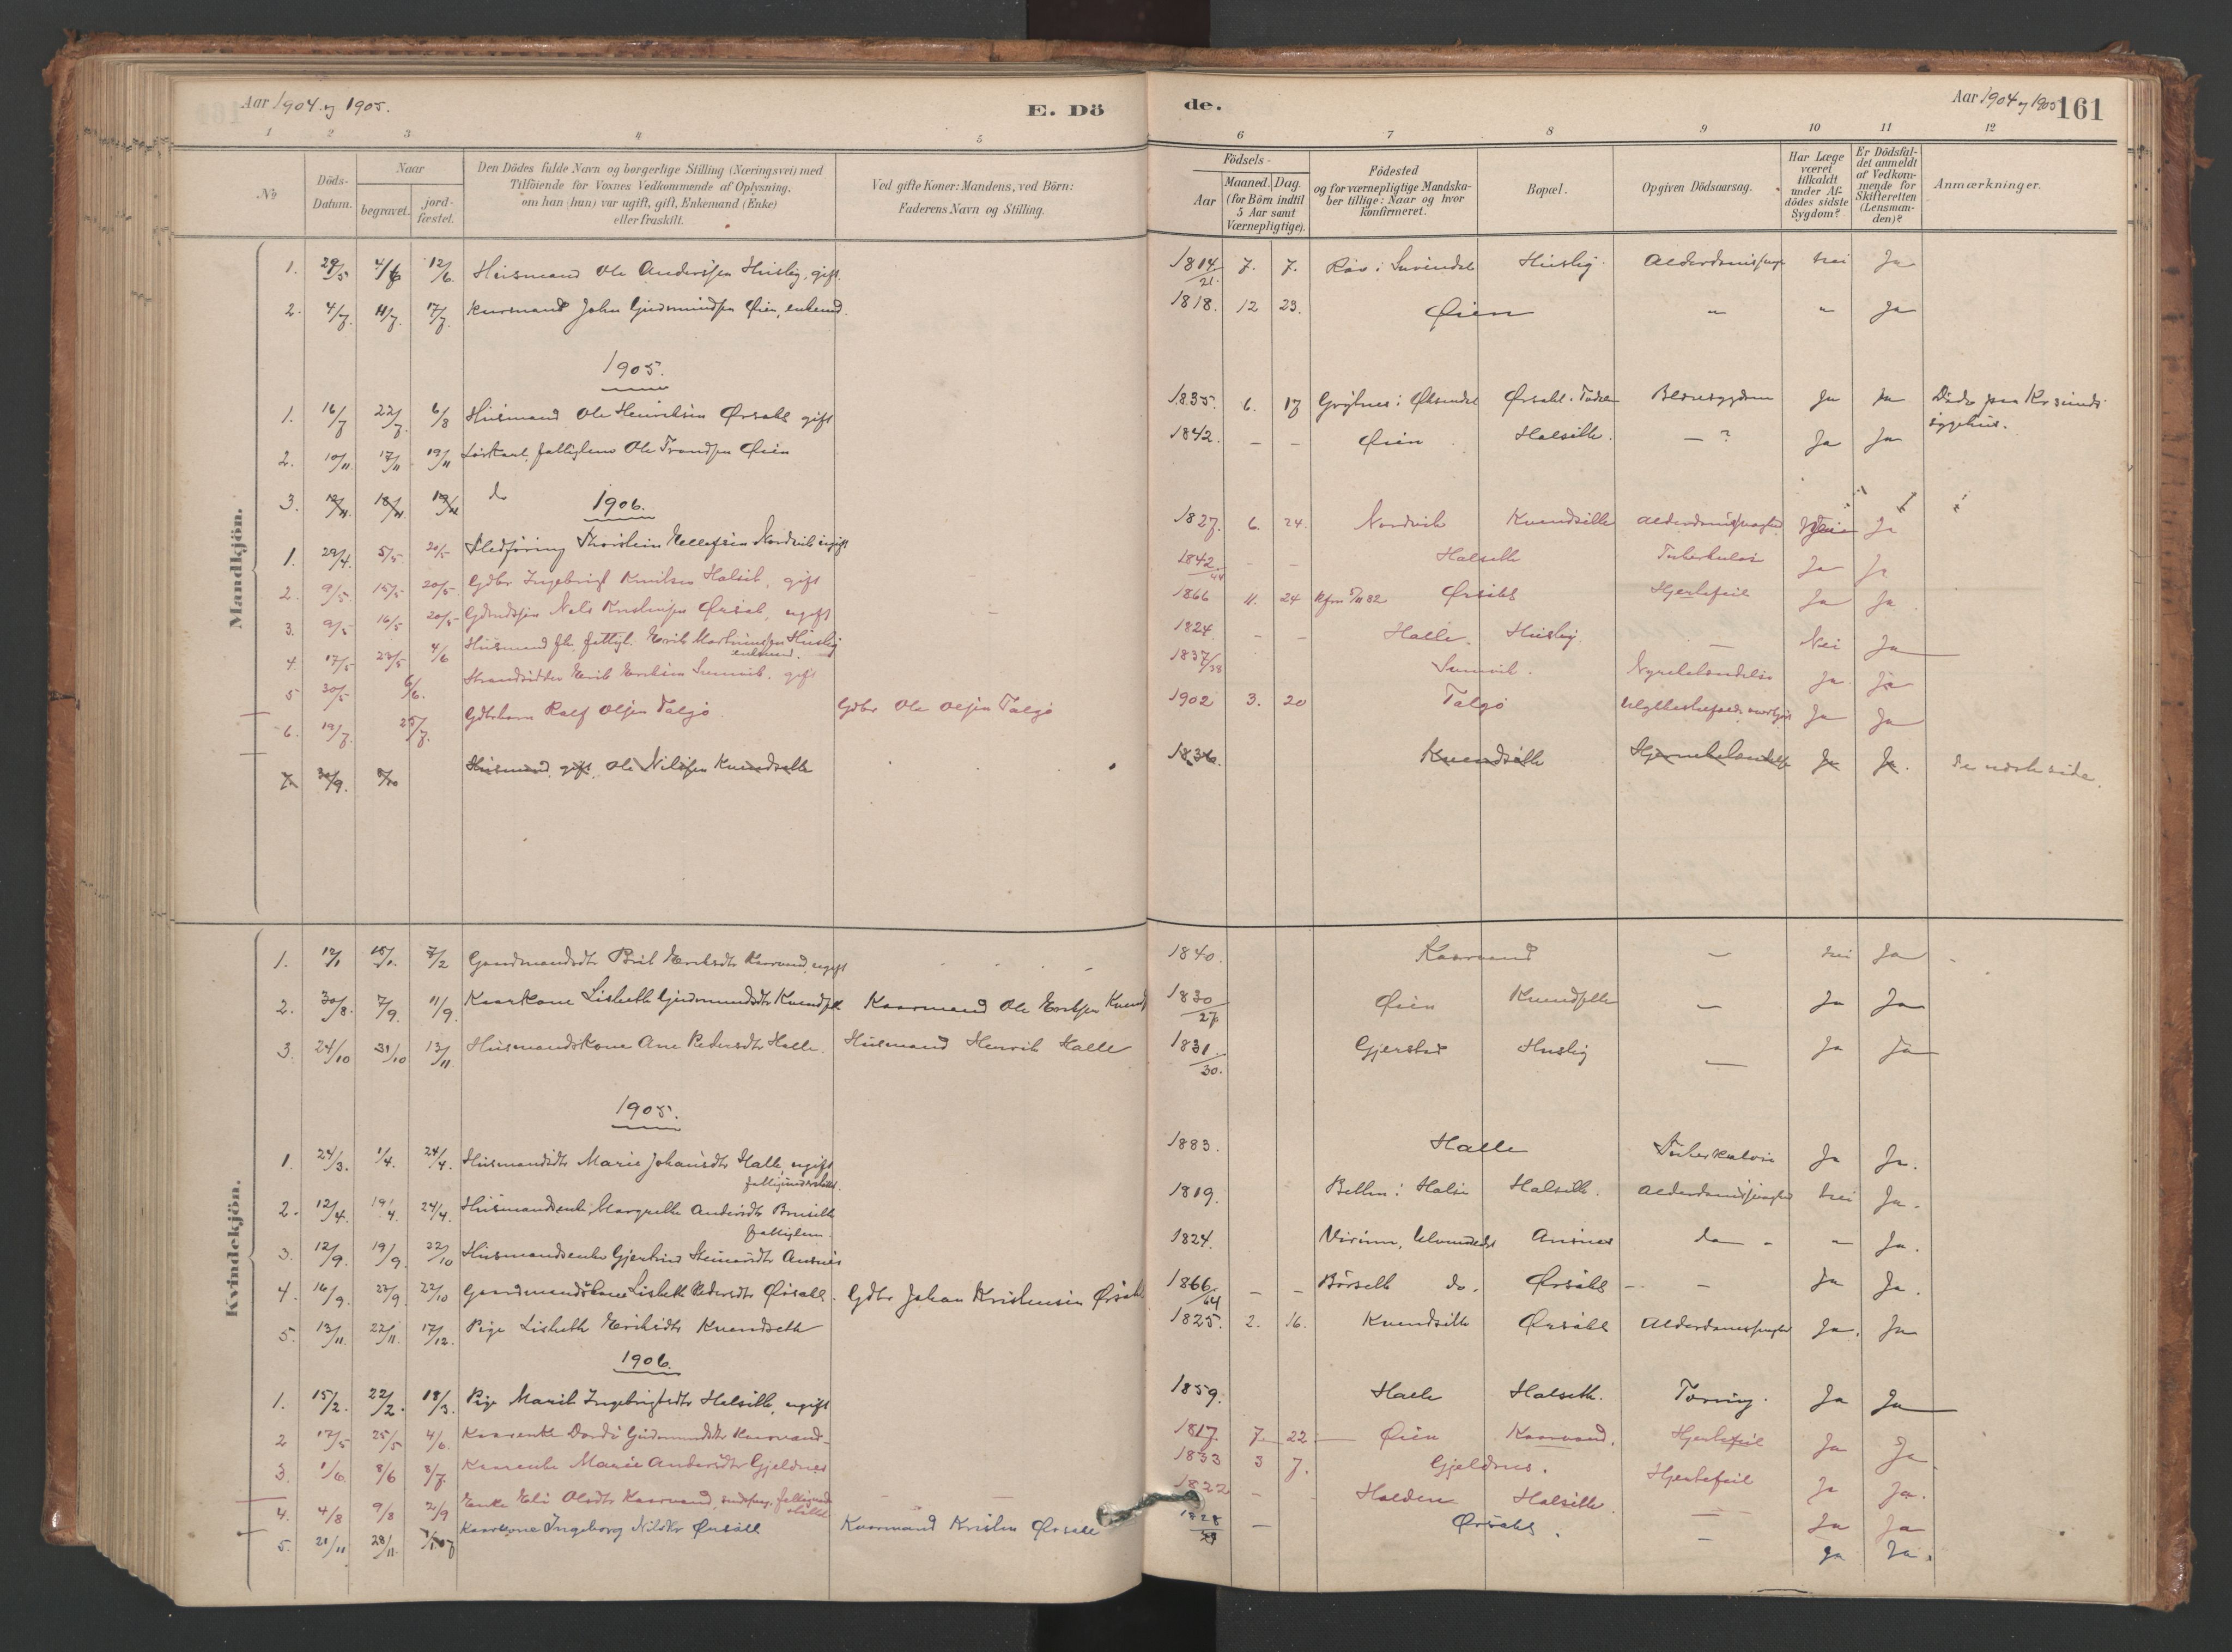 Aar 1904 og 1905.
E. Dö
de.
Aar 1904 og 1905
161
1 2 3 4 5 6 7 8 9 10 11 12
No.
Döds-Datum.
Naar
begravet.
jord-fæstet.
Den Dödes fulde Navn og borgerlige Stilling (Næringsvei) med
Tilföiende for Voxnes Vedkommende af Oplysning.
om han (hun) var ugift, gift, Enkemand (Enke)
eller fraskilt.
Ved gifte Koner: Mandens, ved Börn:
Faderens Navn og Stilling.
Födsels-
Aar
Maaned. Dag.
(for Börn indtil
5 Aar samt
Værnepligtige).
Födested
og for værnepligtige Mandska-
ber tillige: Naar og hvor
konfirmeret.
Bopæl.
Opgiven Dödsaarsag.
Har Læge
været
tilkaldt
under Af-
dödes sidste
Sygdom?
Er Dödsfal-
det anmeldt
af Vedkom-
mende for
Skifteretten
(Lensman-
den)?
Anmærkninger.
Mandkjön.
1. 29/5 4/6 12/6. Husmand Ole Anderssen Husby, gift. 1814/21. 7. 7. Husby. Alderdomssvagh. Nei Ja
2. 4/7. 11/7. 17/7. Kaarmand John Gudmundsen Øien, enkemd. 1818. 12 23. Øien " " Ja
1905.
1. 16/7 22/7. 6/8 Husmand Ole Henriksen Ørsahl gift 1835. 6. 17 Grytnes i Øksendal Ørsahl. Blæresygdom Ja Ja Døde paa Kr.sunds
sygehus.
2. 10/11. 17/11 19/11 Løskarl, fattiglem Ole Trondsen Øien 1842. - - Øien Halseth. - ? Ja Ja
3. 12/11. 18/11. 19/11 do
1906.
1. 29/4. 5/5. 20/5 Nordvik ugift 1827. 6. 24. Nordvik Kvendseth Alderdomssvaghed Nei Ja
2. 9/5. 15/5 20/5. Gdbr Ingebrigt Knutsen Halset, gift 1842/44 - - Halseth Tuberkulose Ja Ja
3. 9/5 16/5 20/5 Nils Kristensen Ørsal, ugift 1866 11. 24 Ørsahl Hjertefeil Ja Ja
4. 17/5 23/5 4/6 Husmand fh. fattigl. Erik Husby
enkemand. 1824 - - Halle. Husby. - Nei Ja
5 30/5 6/6. Strandsidder Erik Eriksen gift 1837/38 Nyrebetændelse Ja. Ja
6. 19/7. 25/7. Gdbrbarn Rolf Olsen Talgø Gdbr Ole Olsen Talgø 1902 3. 20 Talgø Ja Ja
7. 30/9. 8/10 Husmand, gift, Ole Nilsen Kvendseth 1836. Kvendseth Hjernebetændelse Ja Ja. Se næste side.
Kvindekjön.
1. 12/1 18/1. 7/2 Gaardmandsdtr Brit Eriksdtr Kaarvand, ugift 1840. Kaarvand - Nei Ja
2. 30/8. 7/9. 11/9. Kaarkone Lisbeth Gudmundsdtr Kvendseth Kaarmand Ole Eriksen Kvends 1830/27 Øien Kvendseth - Ja Ja
3. 24/10 31/10 13/11. Husmandskone Ane Pedersdtr Halle. Husmand Henrik Halle 1831/30. Gjerstad Husby - Ja Ja
1905.
1. 24/3. 1/4. 24/4. Husmandsdtr Marie Johansdtr Halle, ugift
fattigunderstøttet. 1883. Halle Tuberkulose Ja Ja.
2. 12/4. 19/4. 24/4. Husmandsenke Margrethe Andersdtr
fattiglem. 1819. Halseth. Alderdomssvaghed Nei Ja.
3. 12/9. 19/9. 22/10 Husmandsenke Gjertrud Ansnes 1824. Ansnes do - " Ja.
4. 16/9. 22/9. 22/10 Gaardmandskone Lisbeth Pedersdtr Ørsahl. Gdbr Johan Kristensen Ørsahl 1866/64 - - Børseth do. Ørsahl - - Ja Ja.
5. 13/11. 22/11. 17/12. Pige Lisbeth Eriksdtr Kvendseth 1825. 2. 16. Kvendseth Ørsahl Alderdomssvaghed Ja. Ja
1906.
1. 15/2. 22/2. 18/3. Pige Marit Ingebrigtsdtr Halseth, ugift 1859. Halle Halseth. Tæring. Ja Ja
2 17/5 25/5 4/6. Kaarenke Dordi Gudmundsdtr Kaarvand 1817. 7. 22. Øien Kaarvand. Hjertefeil Ja Ja
3. 1/6. 8/6 8/7. Kaarenke Marie Andersdtr Gjeldnes 1833 3 7. Gjeldnes. Hjertefeil Ja Ja.
4. 4/8 9/8 2/9 Enke Eli Olsdtr Kaarvand, 1822 - Halden Halseth. - Ja Ja
5. 21/11 28/11. Kaarkone Ingeborg Nilsdtr Ørsahl Kaarmand Kristen Ørsahl 1828 - Ørsahl. - Ja Ja.